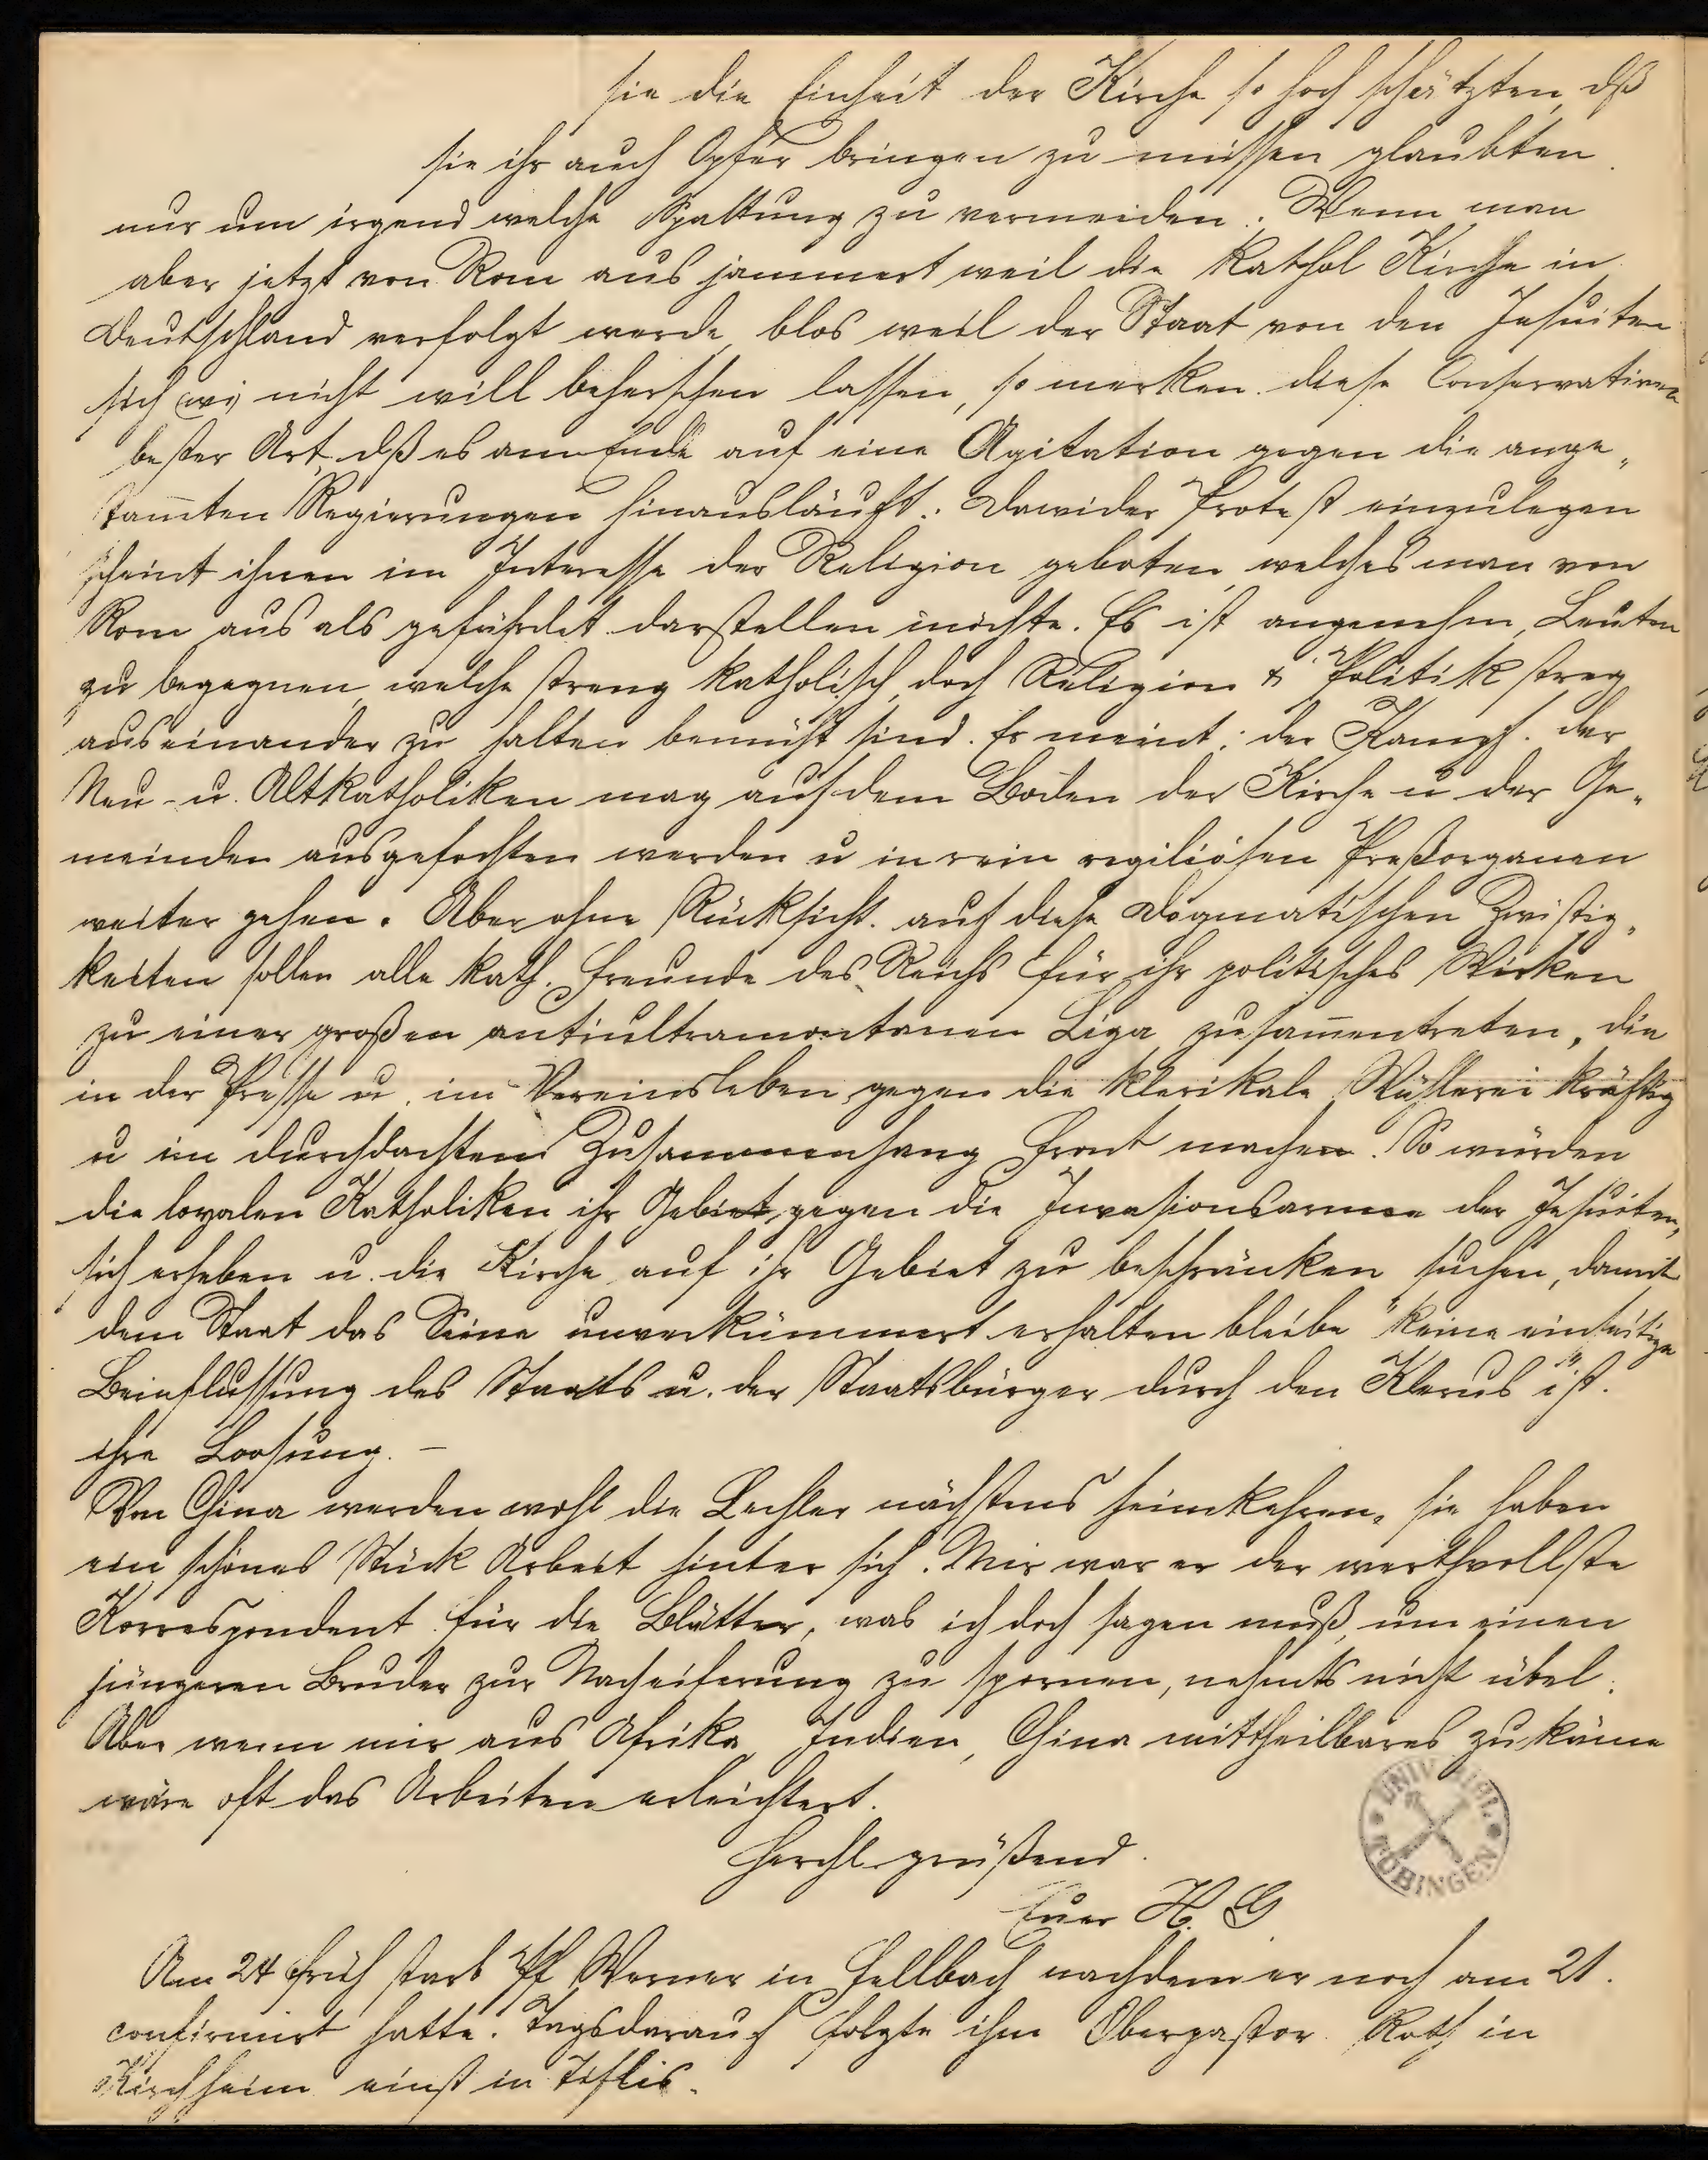 sie die Einheit der Kirche so hoch schätzten, dß
sie ihr auch Opfer bringen zu müssen glaubten
nur um irgend welche Spaltung zu vermeiden. Wenn man
aber jetzt von Rom aus jammert weil die kathol Kirche in
Deutschland verfolgt werde, blos weil der Staat von den Jesuiten
sich nicht will beherschen lassen, so merken diese Conservativen
bester Art, dß es am Ende auf eine Agitation gegen die ange„
stam̅ten Regierungen hinausläuft. Dawider Protest einzulegen
scheint ihnen im Interesse der Religion geboten, welches man von
Rom aus als gefährdet darstellen möchte. Es ist angenehm, Leuten
zu begegnen, welche streng katholisch, doch Religion & Politik streg
auseinander zu halten bemüht sind. Er meint: der Kampf der
Neu- u. Altkatholiken mag auf dem Boden der Kirche u der Ge„
meinden ausgefochten werden u in rein regiliösen Preßorganen
weiter gehen. Aber ohne Rücksicht auf diese dogmatischen Zwistig„
keiten sollen alle kath. Freunde des Reichs für ihr politisches Wirken
zu einer großen antiultramontanen Liga zusam̅entreten, die
in der Presse u. im Vereinsleben gegen die klerikale Wühlerei kräftig
u im durchdachten Zusammenhang Front machen. So würden
die loyalen Katholiken ihr Gebiet gegen die Invasionsarmee der Jesuiten,
sich erheben u. die Kirche auf ihr Gebiet zu beschränken suchen, damit
dem Staat das Seine unverkümmert erhalten bleibe "keine einseitige
Beinflussung des Staats u. der Staatsbürger durch den Klerus" ist
ihre Loosung. —
Von China werden wohl die Lechler nächstens heimkehren, sie haben
ein schönes Stück Arbeit hinter sich. Mir war er der werthvollste
Korrespondent für die Blätter, was ich doch sagen muß, um einen
jüngeren Bruder zur Nacheiferung zu spornen, nehmts nicht übel.
Aber wenn mir aus Afrika, Indien, China mittheilbares zukäme
wäre oft das Arbeiten erleichtert.
Herzl. grüßend
Euer H. G
UNIV. BIBL. TÜBINGEN
Am 24 früh starb Pf Werner in Fellbach nachdem er noch am 21.
confirmirt hatte. Tagsdarauf folgte ihm Oberpastor Roth in
Kirchheim einst in Tiflis.